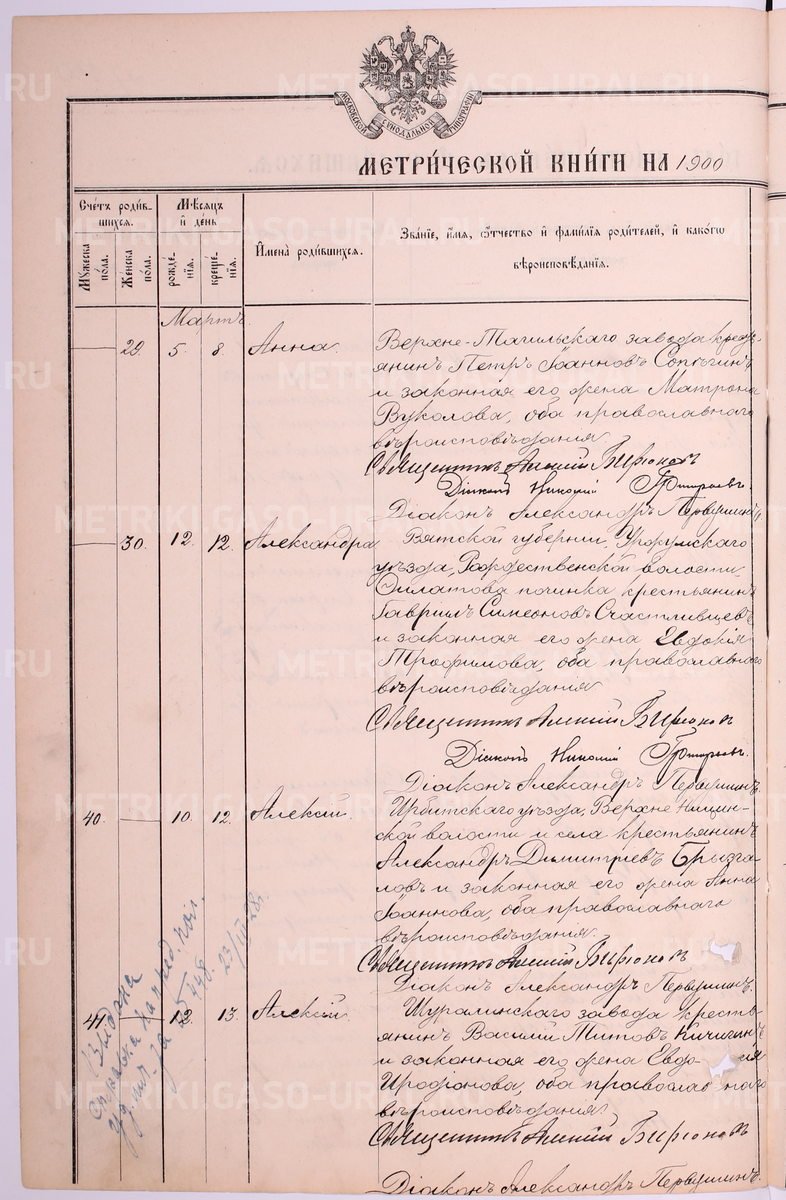 МОСКОВСКОЙ СѴНОДАЛЬНОЙ ТИПОГРАФІИ
МЕТРИ́ЧЕСКОЙ КНИ́ГИ НА 1900
Сче́тъ роди́в-
шихся.
Мѣ́сяцъ
и҆ де́нь
И҆мена̀ роди́вшихся.
Зва́нїе, и҆́мя, ѻ҆́тчество и҆ фами́лїя роди́телей, и҆ како́гѡ
вѣроисповѣ́данїя.
Мꙋ́жеска
по́ла.
Же́нска
по́ла.
рожде́-
нїя.
креще́-
нїя.
Мартъ.
29. 5. 8. Анна.
Верхне-Тагильскаго завода кресть-
янинъ Петръ Іоанновъ Сопегинъ
и законная его жена Матрона
Вуколова, оба православнаго
вѣроисповѣданія.
Священникъ Алексій Бирюковъ
Діаконъ Николай Григорьевъ.
Діаконъ Александръ Первушинъ
30. 12. 12. Александра
Вятской губерніи, Уржумскаго
уѣзда, Рождественской волости,
починка крестьянинъ
Гавріилъ Симеоновъ Счастливцевъ
и законная его жена Евдокія
Трофимова, оба православнаго
вѣроисповѣданія.
Священникъ Алексій Бирюковъ
Діаконъ Николай Григорьевъ.
Діаконъ Александръ Первушинъ.
40. 10. 12. Алексій.
Ирбитскаго уѣзда, Верхне-Ницин-
ской волости и села крестьянинъ
Александръ Димитріевъ Брызга-
ловъ и законная его жена Анна
Іоаннова, оба православнаго
вѣроисповѣданія.
Священникъ Алексій Бирюковъ
Діаконъ Александръ Первушинъ.
41. 12. 13. Алексій.
Шуралинскаго завода кресть-
янинъ Василій Титовъ Кичигинъ
и законная его жена Евдо ія
Иродіонова, оба православнаго
вѣроисповѣданія.
Священникъ Алексій Бирюковъ
Діаконъ Александръ Первушинъ.
Выдана
справка
за № 448.
METRIKI.GASO-URAL.RU